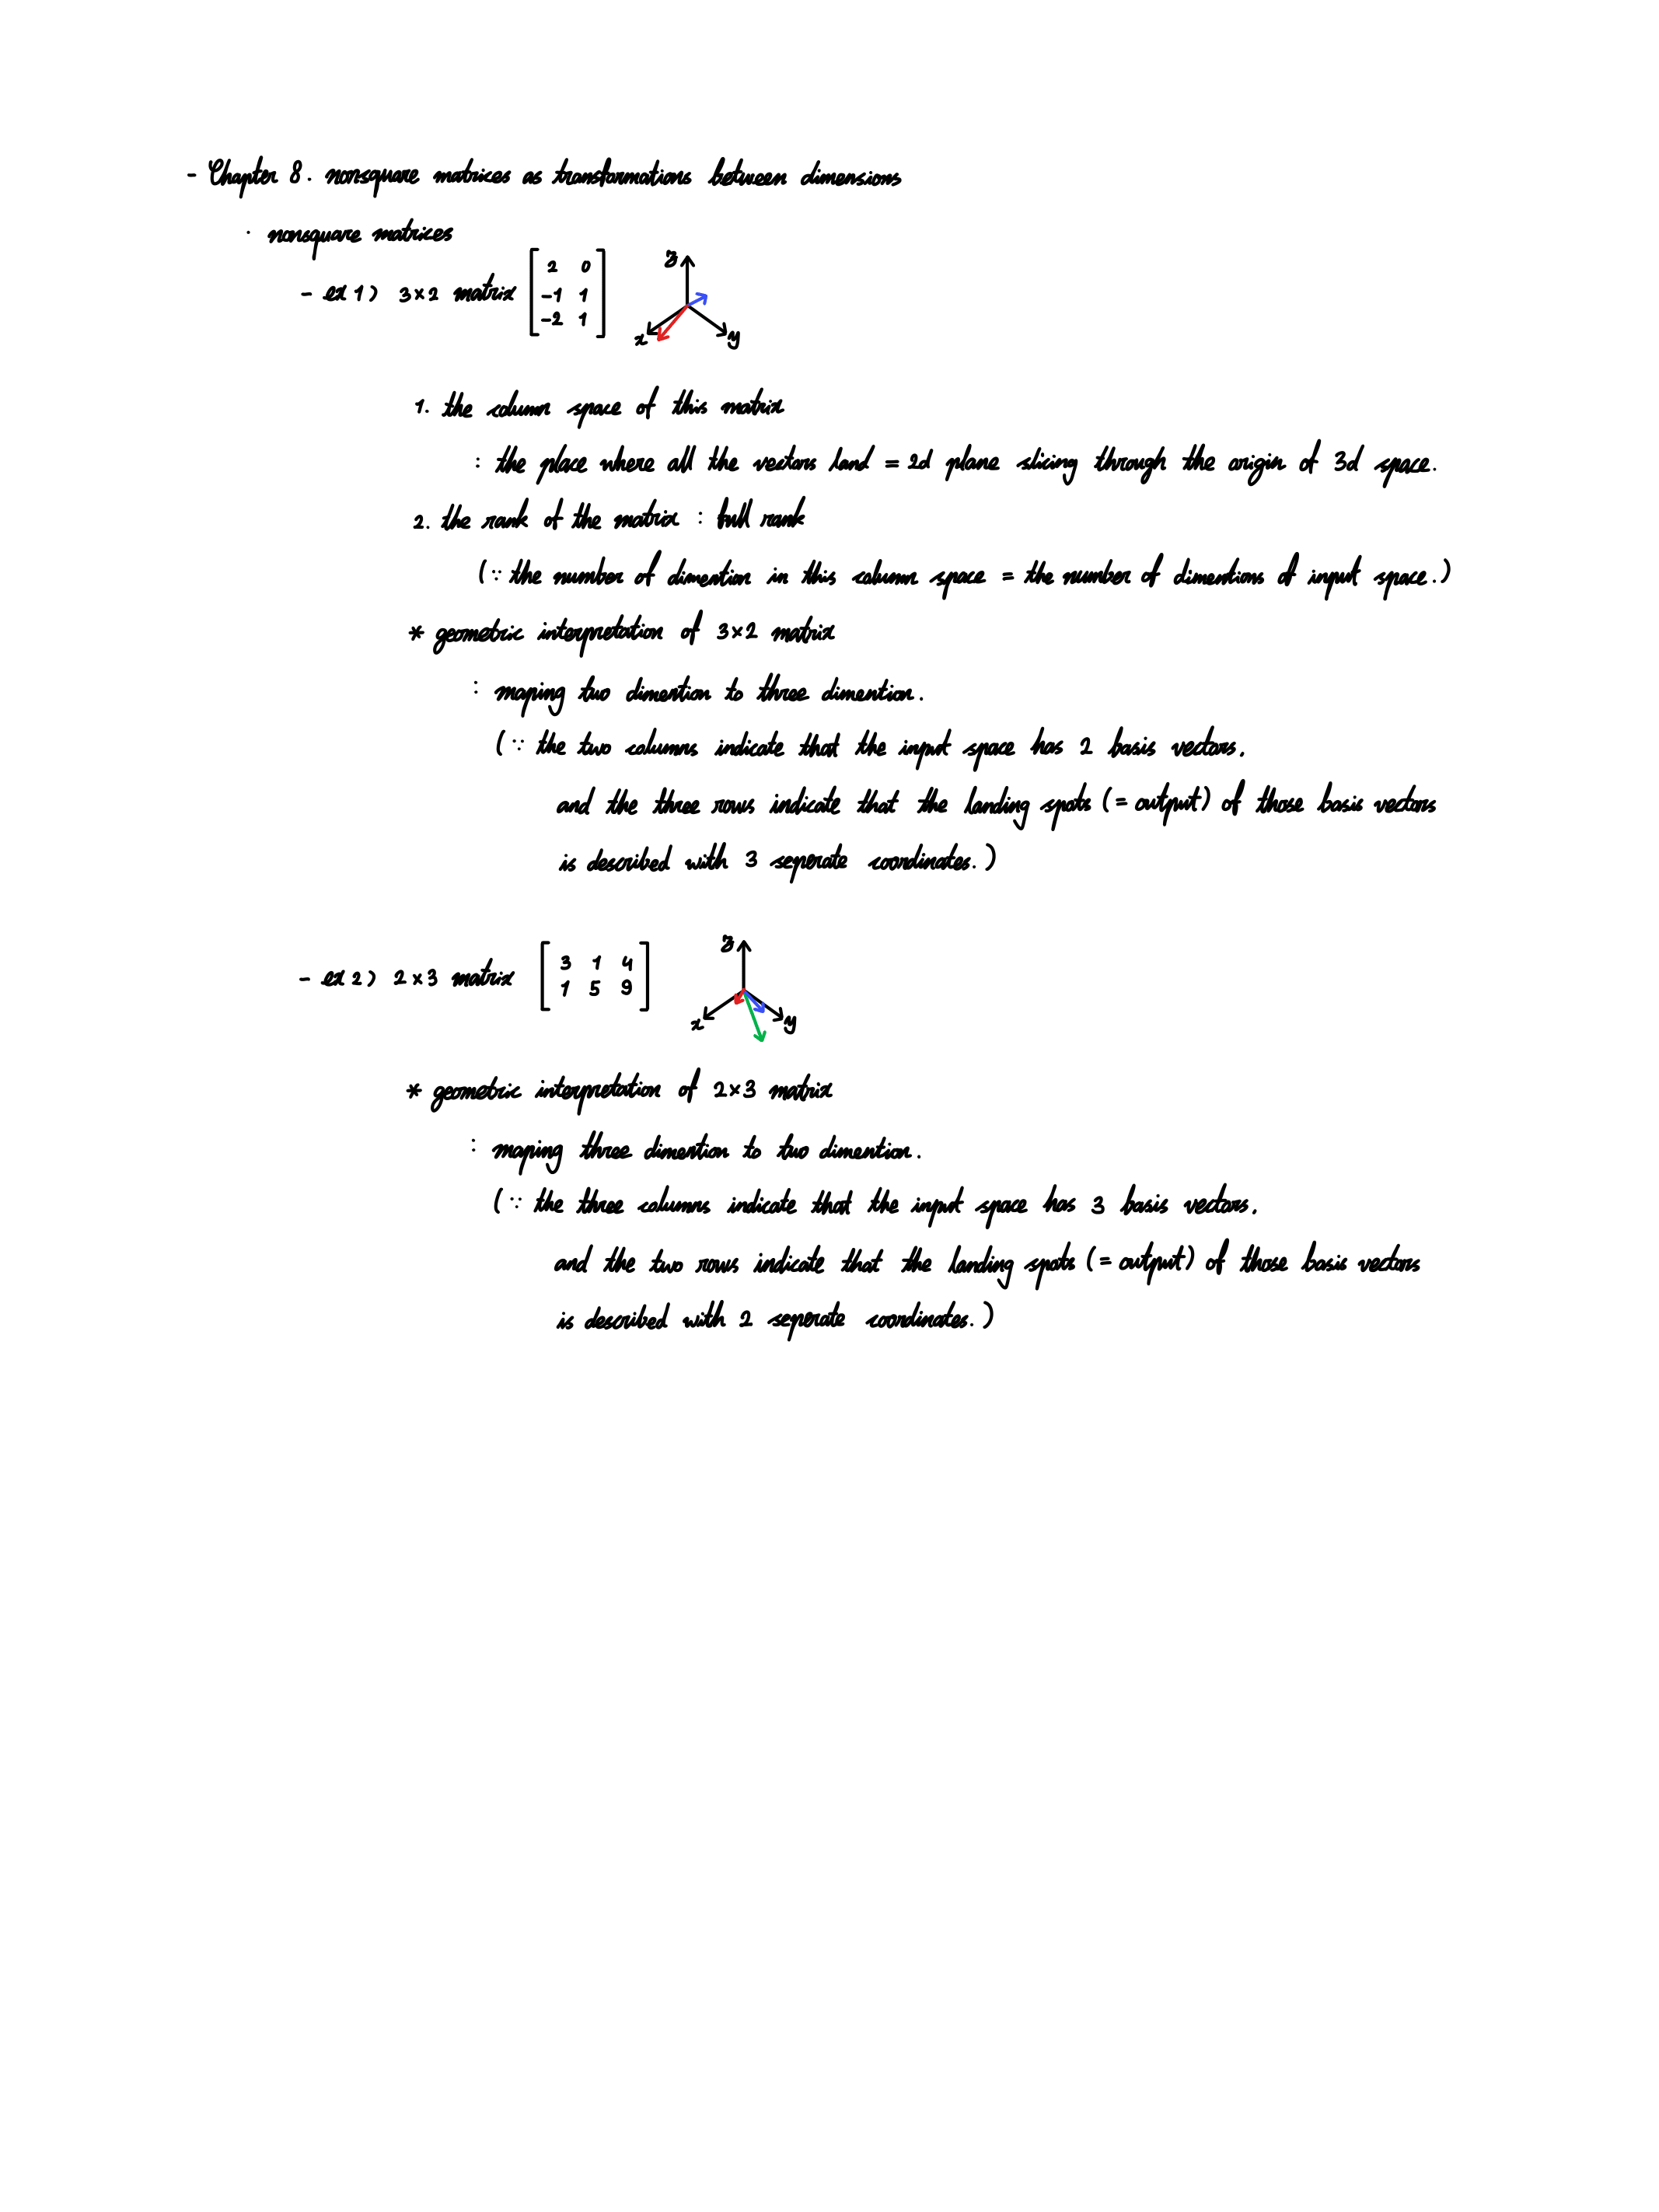 - Chapter 8. nonsquare matrices as transformations between dimensions
· nonsquare matrices
- ex 1) 3×2 matrix [2 0; -1 1; -2 1] z x y
1. the column space of this matrix
: the place where all the vectors land = 2d plane slicing through the origin of 3d space.
2. the rank of the matrix : full rank
(∵ the number of dimention in this column space = the number of dimentions of input space.)
* geometric interpretation of 3×2 matrix
: maping two dimention to three dimention.
(∵ the two columns indicate that the input space has 2 basis vectors,
and the three rows indicate that the landing spots (= output) of those basis vectors
is described with 3 seperate coordinates.)
- ex 2) 2×3 matrix [3 1 4; 1 5 9] z x y
* geometric interpretation of 2×3 matrix
: maping three dimention to two dimention.
(∵ the three columns indicate that the input space has 3 basis vectors,
and the two rows indicate that the landing spots (= output) of those basis vectors
is described with 2 seperate coordinates.)